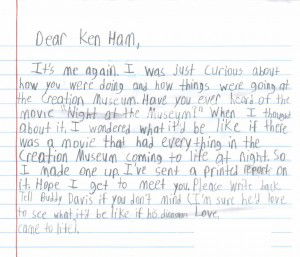 Dear Ken Ham,
It's me again. I was just curious about
how you were doing and how things were going
at the Creation Museum. Have you ever heard of the
movie "Night at the Museum?" When I thought
about it, I wondered what it'd be like if there
was a movie that had everything in the
Creation Museum coming to life at night. So
I made one up. I've sent a printed report on
it. Hope I get to meet you. Please write back.
Tell Buddy Davis if you don't mind (I'm sure he'd love
to see what it'd be like if his Love,
came to life).